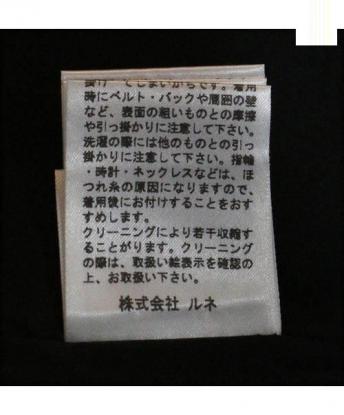 掛けてしまいがちです。着用
時にベルト・バックや周囲の壁
など、表面の粗いものとの摩擦
や引っ掛かりに注意して下さい。
洗濯の際には他のものとの引っ
掛かりに注意して下さい。指輪
・時計・ネックレスなどは、ほ
つれ糸の原因になりますので、
着用後にお付けすることをおす
すめします。
クリーニングにより若干収縮す
ることがります。クリーニング
の際は、取扱い絵表示を確認の
上、お取扱い下さい。
株式会社 ルネ